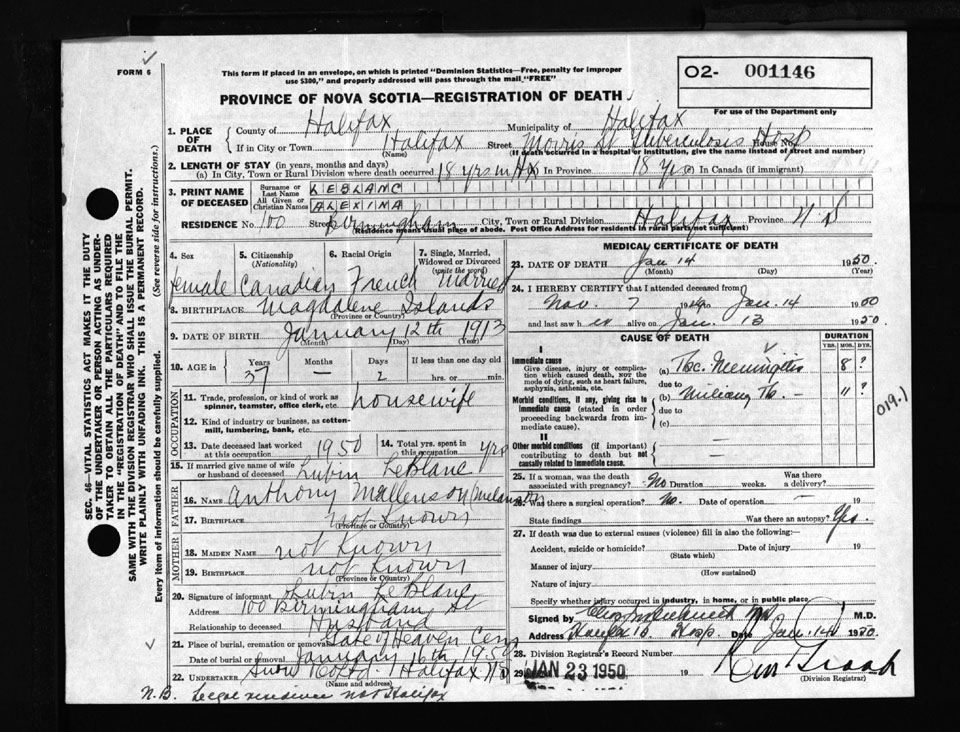 FORM 6
This form if placed in an envelope, on which is printed "Dominion Statistics—Free, penalty for improper
use $300," and properly addressed will pass through the mail "FREE"
O2- 001146
For use of the Department only
PROVINCE OF NOVA SCOTIA—REGISTRATION OF DEATH
1. PLACE OF DEATH
County of Halifax Municipality of Halifax
If in City or Town Halifax Street Morris St Tuberculosis Hosp House No.
(Name) (If death occurred in a hospital or institution, give the name instead of street and number)
2. LENGTH OF STAY (in years, months and days)
(a) In City, Town or Rural Division where death occurred 18 yrs in Hfx (b) In Province 18 Yrs (c) In Canada (if immigrant)
3. PRINT NAME OF DECEASED
Surname or Last Name LEBLANC
All Given or Christian Names ALEXINA
RESIDENCE No. 100 Street Birmingham City, Town or Rural Division Halifax Province N S
(Residence means usual place of abode. Post Office Address for residents in rural parts not sufficient)
4. Sex 5. Citizenship (Nationality) 6. Racial Origin 7. Single, Married, Widowed or Divorced (write the word)
Female Canadian French Married
8. BIRTHPLACE Magdalene Islands
(Province or Country)
9. DATE OF BIRTH January 12th 1913
(Month) (Day) (Year)
10. AGE in Years 37 Months — Days 2 If less than one day old
hrs. or min.
OCCUPATION
11. Trade, profession, or kind of work as spinner, teamster, office clerk, etc. housewife
12. Kind of industry or business, as cotton-mill, lumbering, bank, etc.
13. Date deceased last worked at this occupation 1950 14. Total yrs. spent in this occupation yrs
15. If married give name of wife or husband of deceased Lubin LeBlanc
FATHER
16. NAME Anthony
17. BIRTHPLACE not known
(Province or Country)
MOTHER
18. MAIDEN NAME not known
19. BIRTHPLACE not known
(Province or Country)
20. Signature of informant Lubin LeBlanc
Address 100 Birmingham St
Relationship to deceased Husband
21. Place of burial, cremation or removal Gate of Heaven Cem
Date of burial or removal January 16th 1950
22. Undertaker Snow Co Ltd Halifax N S
(Name and address)
N.B. Legal residence not Halifax
MEDICAL CERTIFICATE OF DEATH
23. DATE OF DEATH Jan 14 1950
(Month) (Day) (Year)
24. I HEREBY CERTIFY that I attended deceased from
Nov. 7 1949 to Jan. 14 1950
and last saw her alive on Jan. 13 1950
CAUSE OF DEATH DURATION
YRS. MOS. DYS.
I
Immediate cause
Give disease, injury or complication which caused death, NOT the mode of dying, such as heart failure, asphyxia, asthenia, etc.
(a) Tbc. Meningitis 8 ?
due to
Morbid conditions, if any, giving rise to immediate cause (stated in order proceeding backwards from immediate cause).
(b) Miliary Tb. 11 ?
due to
(c)
II
Other morbid conditions (if important) contributing to death but not causally related to immediate cause.
019.1
25. If a woman, was the death associated with pregnancy? No Duration weeks. Was there a delivery?
26. Was there a surgical operation? No. Date of operation — 19
State findings Was there an autopsy? Yes.
27. If death was due to external causes (violence) fill in also the following:—
Accident, suicide or homicide? Date of injury 19
(State which)
Manner of injury
(How sustained)
Nature of injury
Specify whether injury occurred in industry, in home, or in public place
Signed by M.D.
Address Halifax Tb. Hosp. Date Jan. 14 1950
28. Division Registrar's Record Number
29. JAN 23 1950 19
(Division Registrar)
SEC. 46—VITAL STATISTICS ACT MAKES IT THE DUTY
OF THE UNDERTAKER OR PERSON ACTING AS UNDER-
TAKER TO OBTAIN ALL THE PARTICULARS REQUIRED
IN THE "REGISTRATION OF DEATH" AND TO FILE THE
SAME WITH THE DIVISION REGISTRAR WHO SHALL ISSUE THE BURIAL PERMIT.
WRITE PLAINLY WITH UNFADING INK. THIS IS A PERMANENT RECORD.
Every item of information should be carefully supplied. (See reverse side for instructions.)